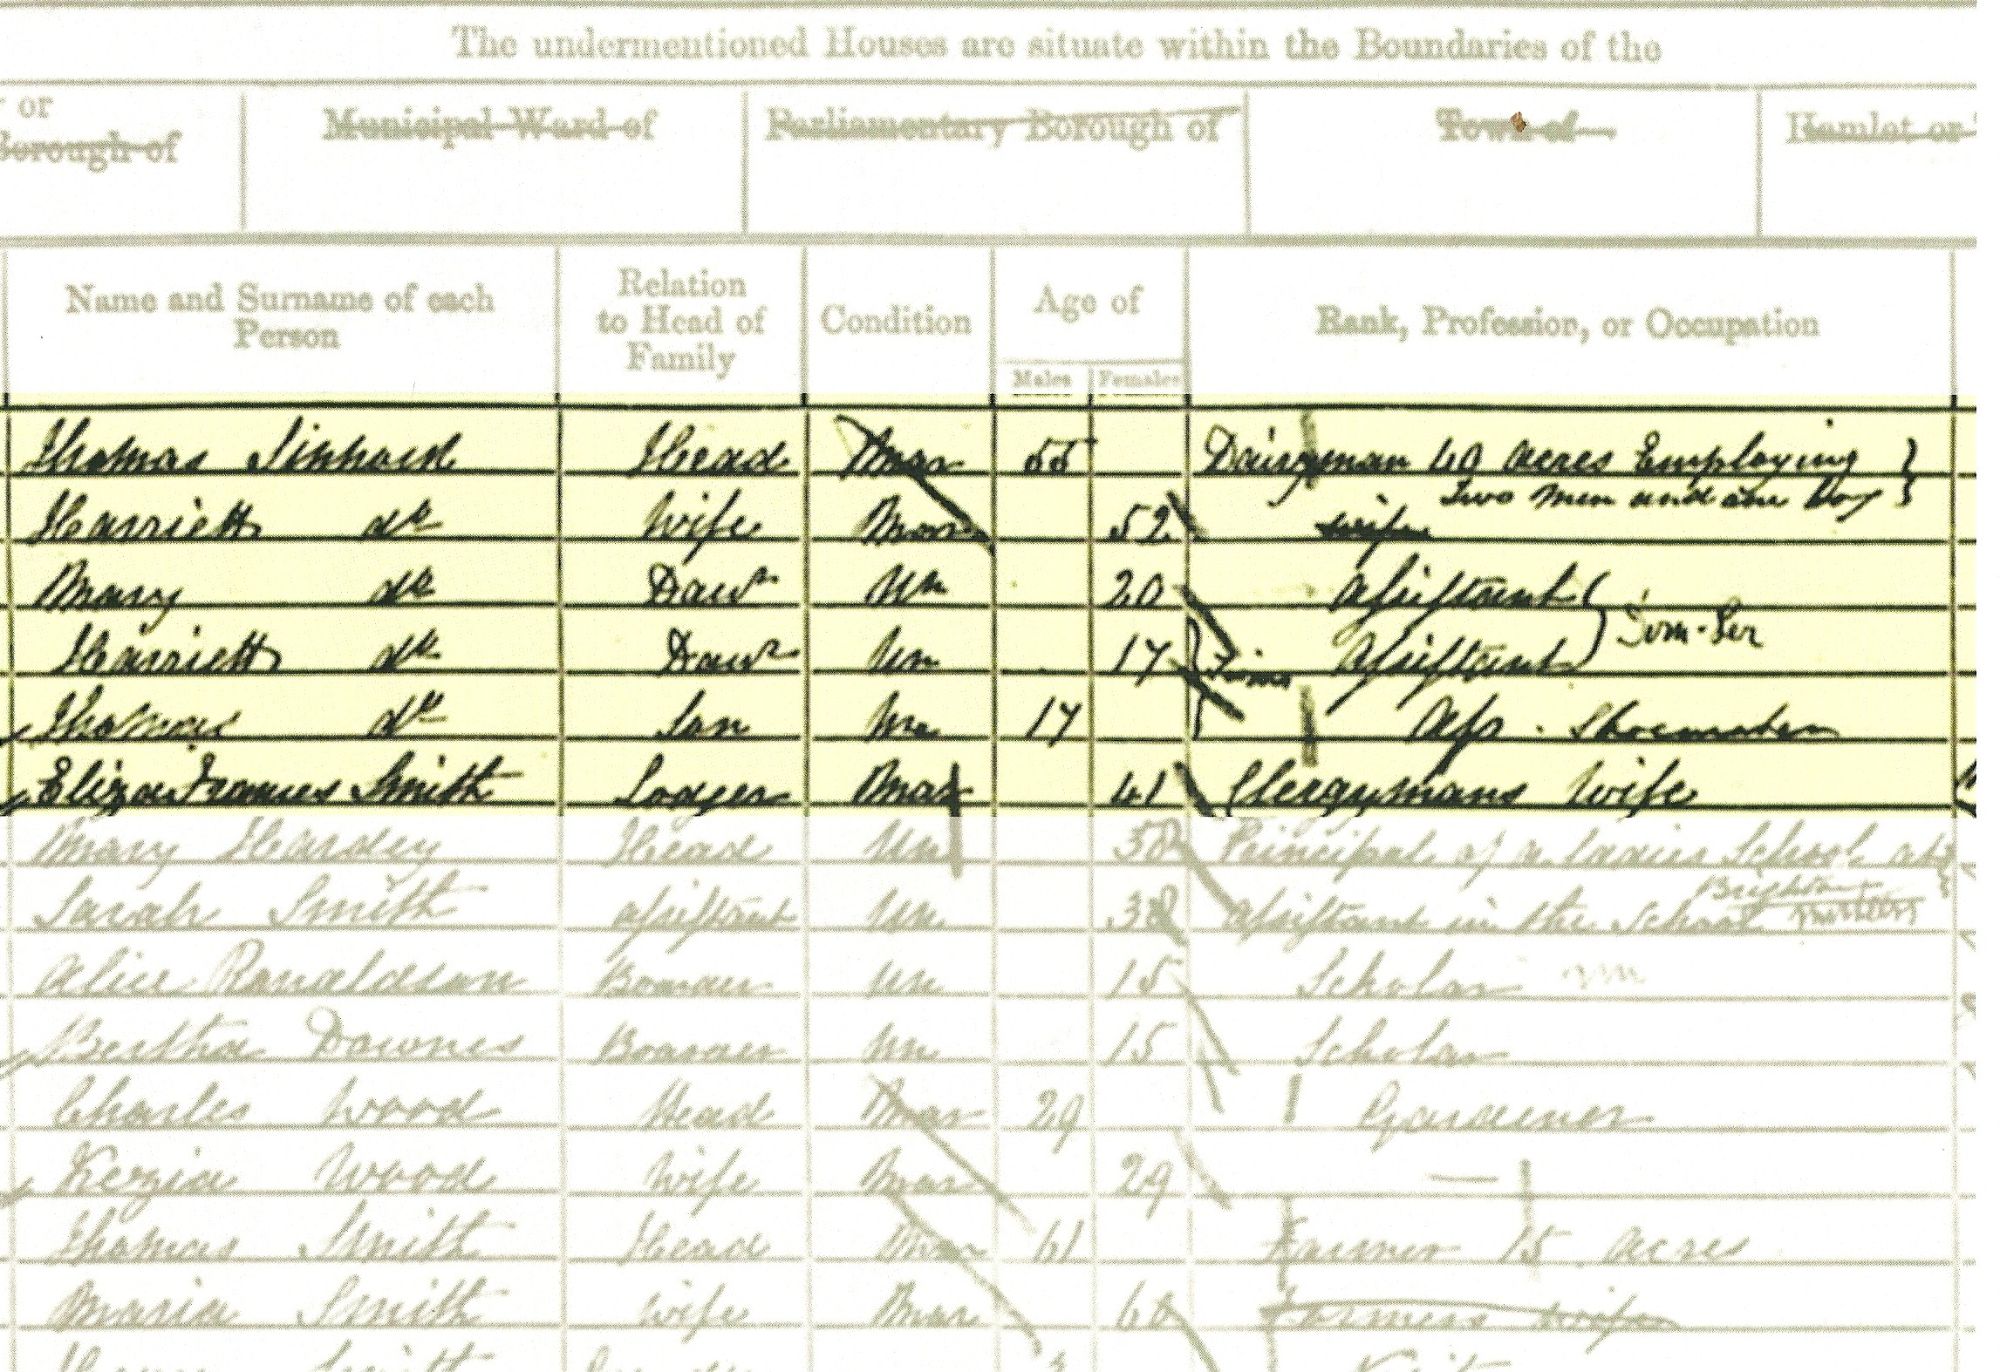 The undermentioned Houses are situate within the Boundaries of the
or
Borough of
Municipal Ward of
Parliamentary Borough of
Town of
Hamlet or
Name and Surname of each
Person
Relation
to Head of
Family
Condition
Age of
Males Females
Rank, Profession, or Occupation
Thomas Head Mar 55 Dairyman 40 acres Employing
Two men and one boy
Harriett do Wife Mar 52 wife
Mary do Dawr Un 20 Assistant
Harriett do Dawr Un 17 Assistant
Thomas do Son Un 17 Shoemaker
Eliza Frances Smith Lodger Mar 41 Clergymans Wife
Mary Hardey Head Un 50 Principal of a Ladies School at
Brighton
Sarah Smith Assistant Un 38 Assistant in the School
Alice Ronaldson Boarder Un 15 Scholar
Bertha Downes Boarder Un 15 Scholar
Charles Wood Head Mar 29 Gardener
Kezia Wood Wife Mar 29 —
Thomas Smith Head Mar 61 Farmer 15 acres
Maria Smith Wife Mar 60 Farmers wife
Smith